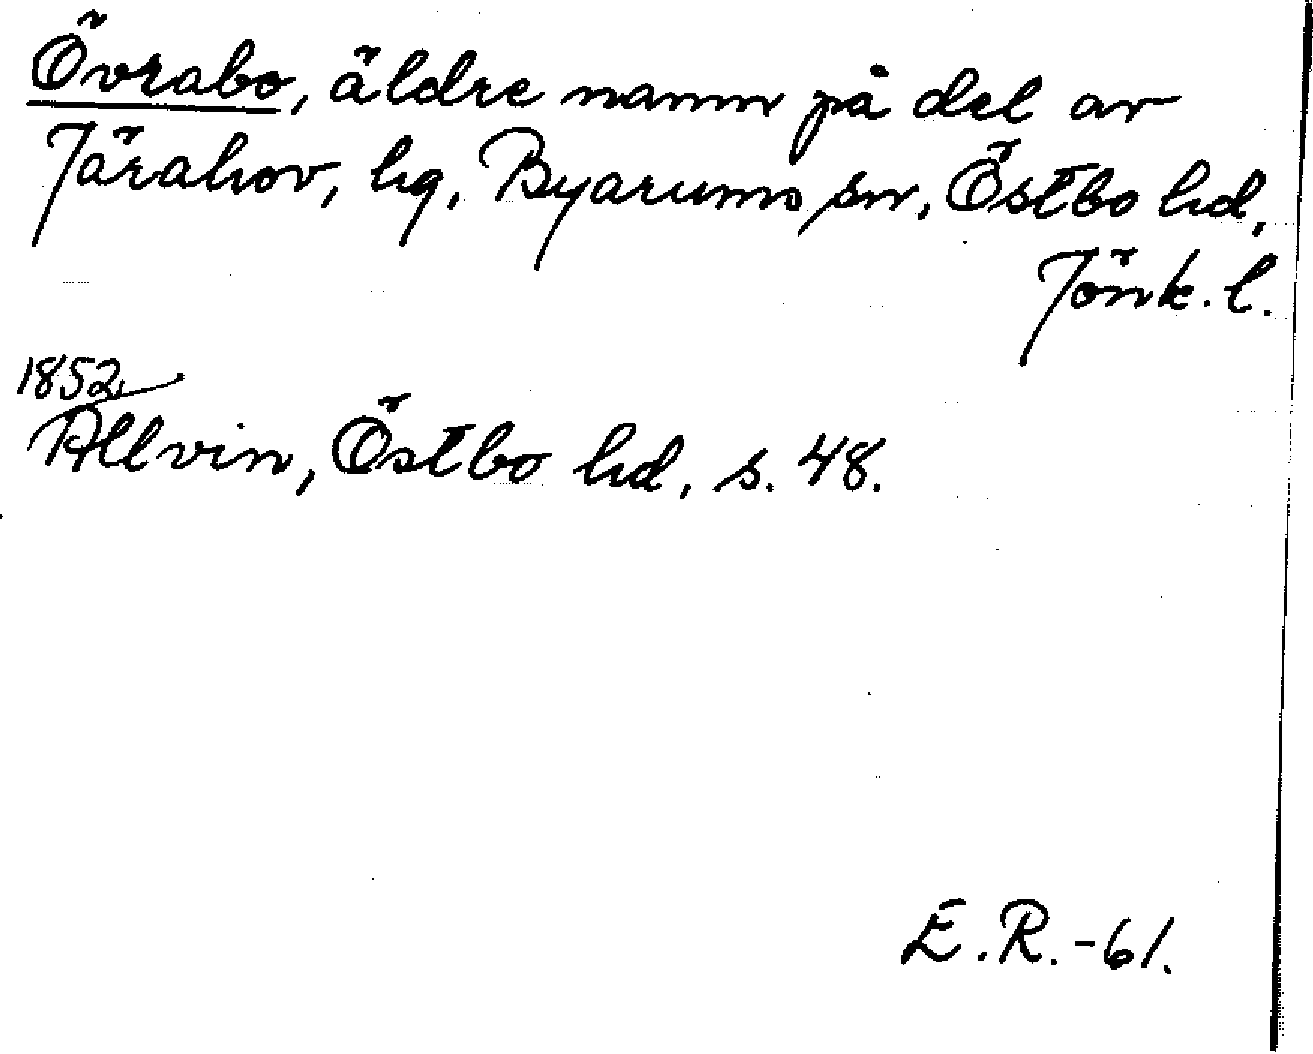 Övrabo, äldre namn på del av
Järahov, hg, Byarums sn, Östbo hd,
Jönk. l.
1852
Allvin, Östbo hd, s. 48.
E.R.-61.